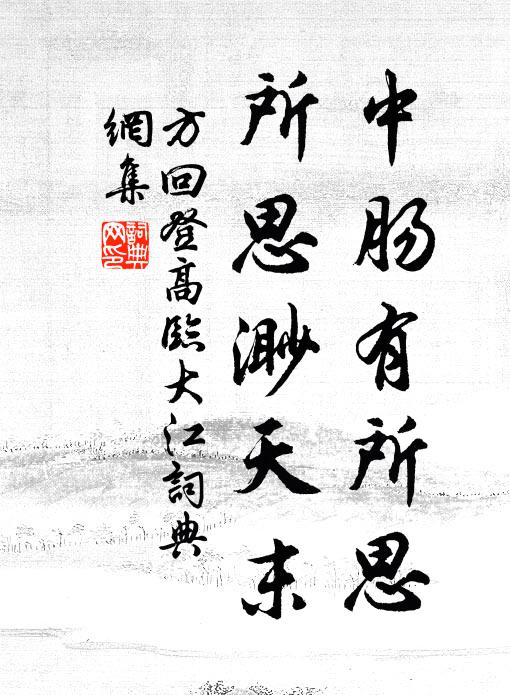 中肠有所思
所思渺天末
方回登高臨大江詞典
網集
詞典
网印